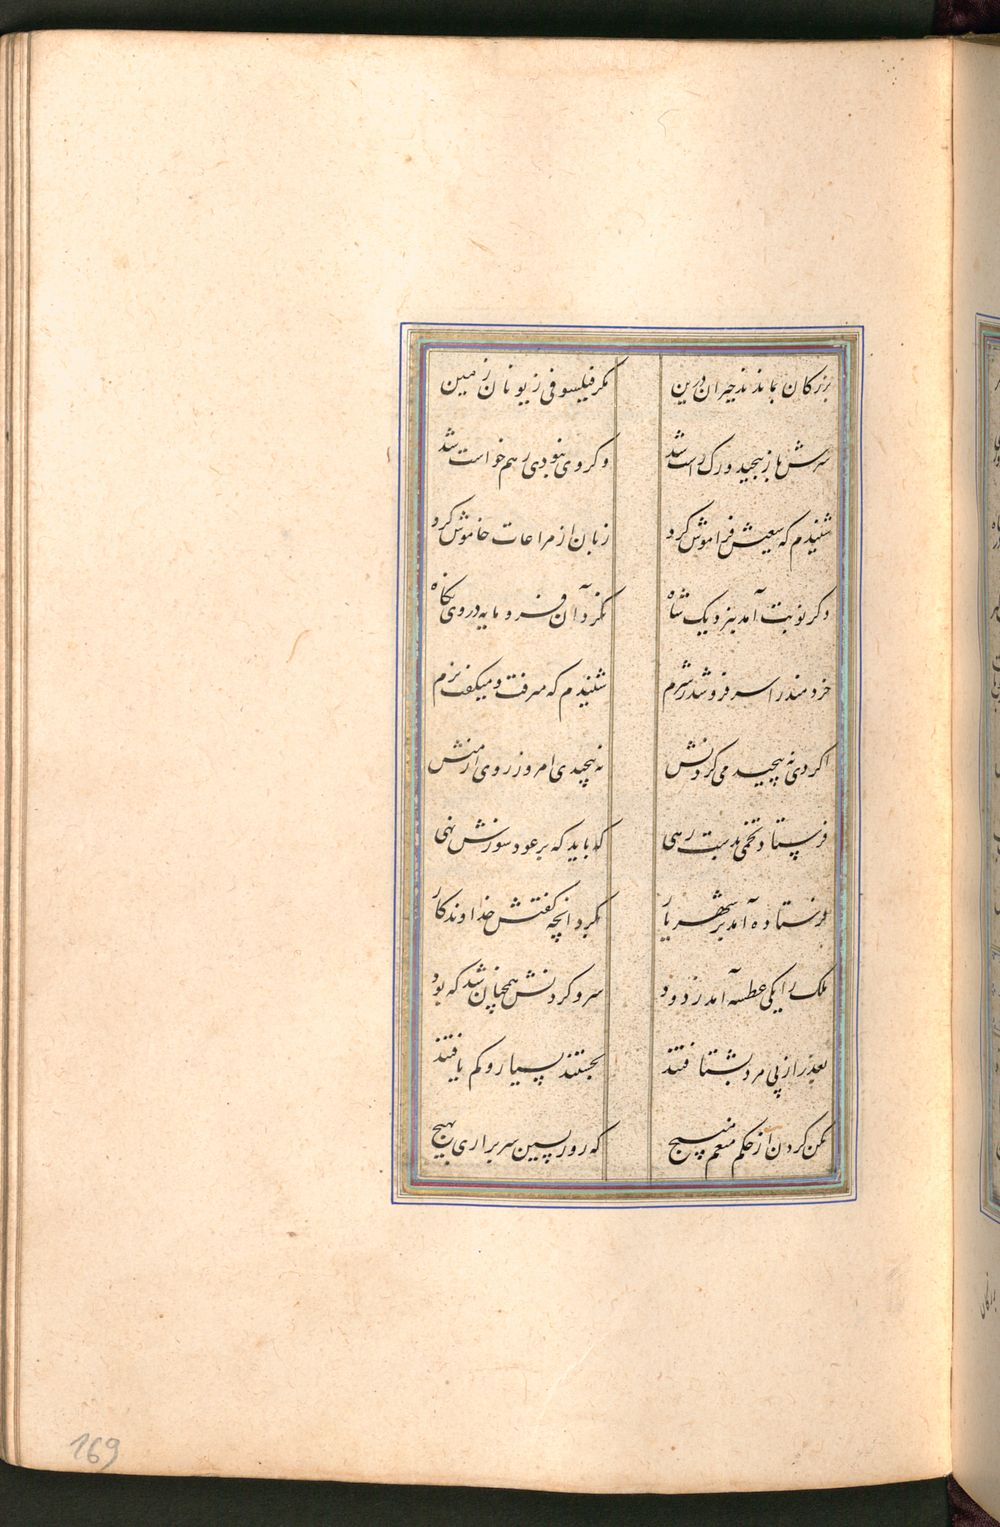 بزرکان بماندند حیران درین مکر فیلسوفی ز یونان زمین
سرش باز پیچید و رک راست شد وکر وی نبودی رهم خواست شد
شنیدم که سعیش فراموش کرد زبان از مراعات خاموش کرد
دکر نوبت آمد بنزدیک شاه نکرد آن فرومایه در وی نکاه
خردمند را سر فرو شد ز شرم شنیدم که میرفت و میکفت نرم
اکر دی نه پیچیدمی کردنش نه پیچیدی امروز روی از منش
فرستاد تخمی بدست رهی که باید که بر عود سوزش نهی
فرستاده آمد بر شهریار بکرد انچه کفتش خداوندکار
ملک را یکی عطسه آمد ز دود سر و کردنش همچنان شد که بود
بعذر از پی مرد بشتافتند بجستند بسیار و کم یافتند
مکن کردن از حکم منعم مپیچ که روز پسین سر براری بهیچ
169